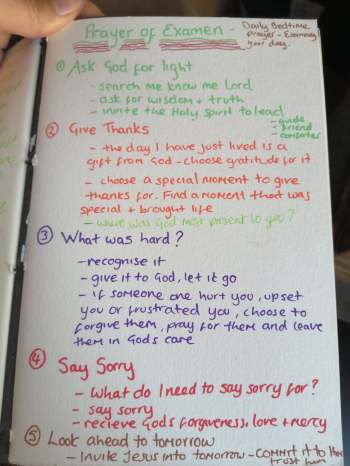 Prayer of Examen -
Daily Bedtime
prayer - Examening
your day.
① Ask God for light
- search me know me Lord
- ask for wisdom + truth
- invite the Holy Spirit to lead
- guide
- friend
- comforter
② Give Thanks
- the day I have just lived is a
gift from God - choose gratitude for it
- choose a special moment to give
thanks for. Find a moment that was
special + brought life
- where was God most present to you?
③ What was hard?
- recognise it
- give it to God, let it go
- if someone one hurt you, upset
you or frustrated you, choose to
forgive them, pray for them and leave
them in Gods care
④ Say Sorry
- What do I need to say sorry for?
- say sorry
- recieve Gods forgiveness, love + mercy
⑤ Look ahead to tomorrow
- Invite Jesus into tomorrow - COMMIT it to Him
trust him